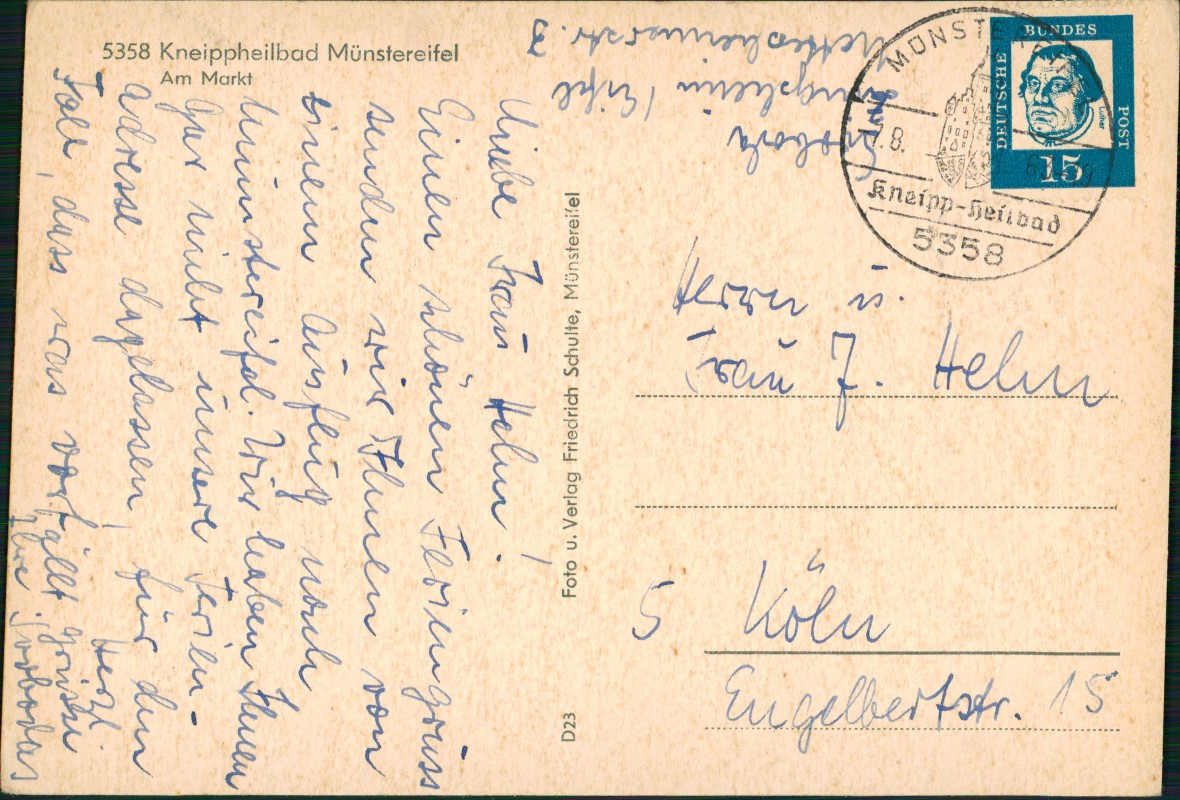 5358 Kneippheilbad Münstereifel
Am Markt
Liebe Frau Helm!
Einen schönen Feriengruss
senden wir Ihnen von
einem Ausflug nach
Münstereifel. Wir haben Ihnen
gar nicht unsere Ferien-
adresse dagelassen, für den
Fall, dass was vorfällt
Herzl.
Grüsse
Ihre
Foto u. Verlag Friedrich Schulte, Münstereifel
D23
/ Eifel
3
MÜNSTEREIFEL
8.
Kneipp-Heilbad
5358
DEUTSCHE
BUNDES
POST
Luther
15
Herrn u.
Frau J. Helm
5 Köln
Engelbertstr. 15